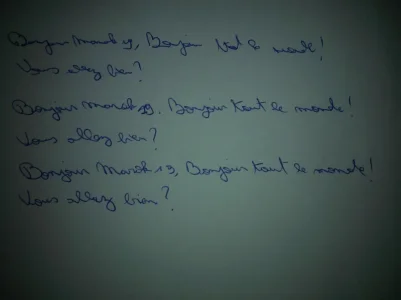 Bonjour Marak 19, Bonjour tout le monde!
Vous allez bien?
Bonjour Marak 19. Bonjour tout le monde!
Vous allez bien?
Bonjour Marak 19, Bonjour tout le monde!
Vous allez bien?